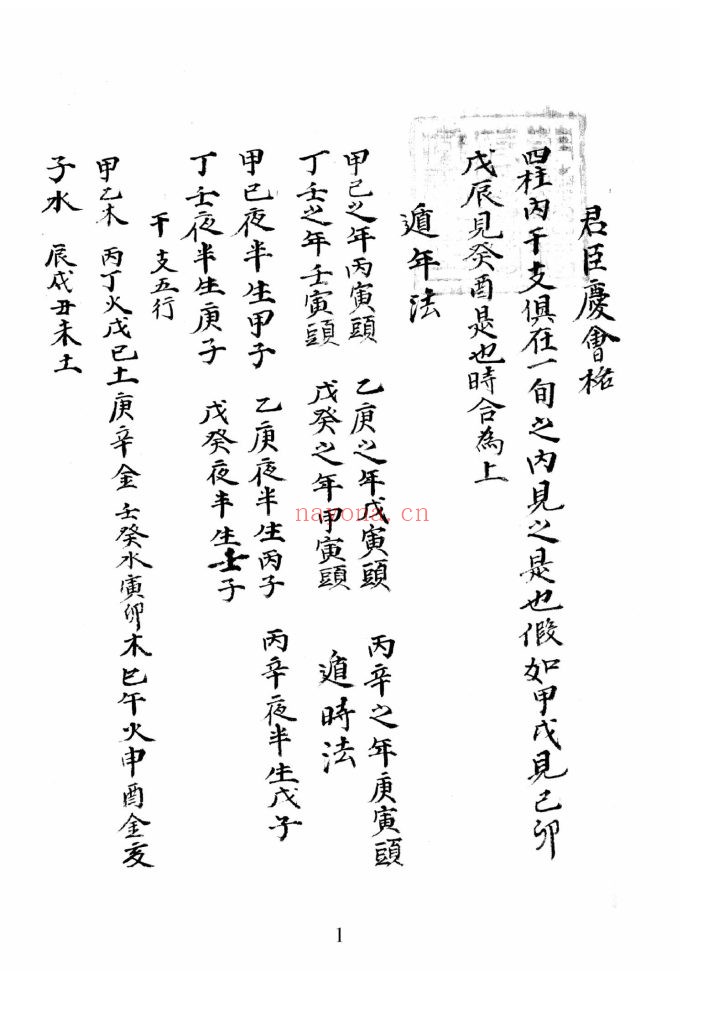 君臣慶會格
四柱內干支俱在一旬之內見之是也假如甲戌見己卯
戊辰見癸酉是也時合為上
遁年法
甲己之年丙寅頭 乙庚之年戊寅頭 丙辛之年庚寅頭
丁壬之年壬寅頭 戊癸之年甲寅頭
遁時法
甲己夜半生甲子 乙庚夜半生丙子 丙辛夜半生戊子
丁壬夜半生庚子 戊癸夜半生壬子
干支五行
甲乙木 丙丁火戊己土庚辛金 壬癸水寅卯木巳午火申酉金亥
子水 辰戌丑未土
nayona.cn
1